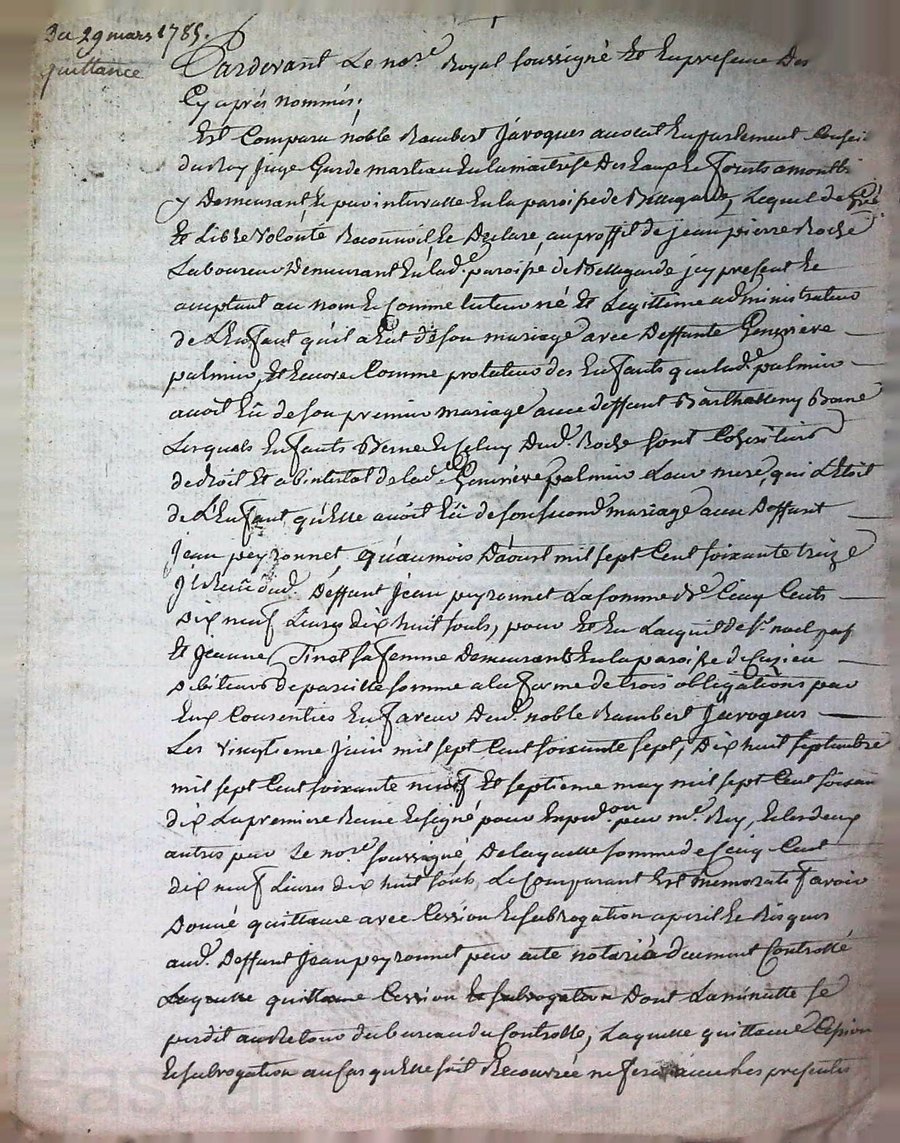 Du 29 mars 1785.
quittance
Pardevant Le no.re Royal soussigné Et En presence Des
Cy après nommés;
Est Comparu noble Rambert Javogues avocat En parlement Conseil
du Roy Juge Garde marteau En la maitrise Des Eaux Et forets a montb
y Demeurant Et par intervalle En la paroisse de Bellegarde, Lequel de Gré
Et Libre volonté Reconnoit Et Declare, au proffit de jean pierre Roche
Laboureur Demeurant En lad.e paroisse de Bellegarde jcy present Et
acceptant au nom Et Comme tuteur né Et Legittime administrateur
de L'Enfant qu'il a Eut de son mariage avec Deffunte Genevieve
palmier, Et Encore Comme protuteur des Enfants que lad.e palmier
avoit Eû de son premier mariage avec deffunt Barthellemy Berne
Lesquels Enfants Berne Et Celuy Dud. Roche sont Coheritiers
de droit Et abintestat de lad.e Genevieve palmier Leur mere, qui L'Etoit
de L'Enfant qu'Elle avoit Eû de son second mariage avec Deffunt
Jean peyronnet, qu'au mois D'aoust mil sept Cent soixante treize
Jl Reçut dud. Deffunt Jean peyronnet La somme de Cinq Cents
Dix neuf Livres dix huit souls, pour Et En L'acquit de S.r noel
Et Jeanne Tinet sa femme Demeurants En la paroisse de Cuzieu
debiteurs de pareille somme a la forme de trois obligations par
Eux Consenties En faveur Dud. noble Rambert Javogues
Les vingtieme Juin mil sept Cent soixante sept, Dix huit septembre
mil sept Cent soixante neuf Et septieme may mil sept Cent soixan
dix La premiere Reçue Et signé pour Exped.on par m.e Rey, Et les deux
autres par Le no.re soussigné, De laquelle somme de Cinq Cent
dix neuf Livres dix huit souls, Le Comparant Est memoratif avoir
Donné quittance avec Cession Et subrogation a peril Et Risques
aud. Deffunt Jean peyronnet par acte notarié duement Controllé
Laquelle quittance Cession Et subrogation Dont La minutte se
perdit au Retour du bureau du Controlle, Laquelle quittance Cession
Et subrogation au Cas qu'Elle soit Recouvrée ne fera avec Les presentes